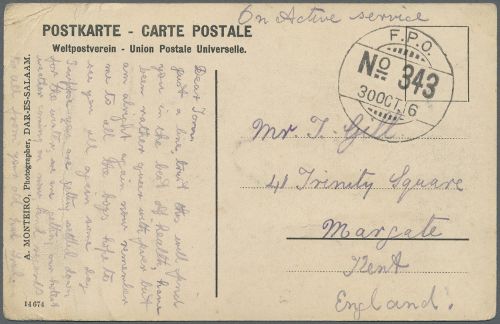 On Active service
POSTKARTE - CARTE POSTALE
Weltpostverein - Union Postale Universelle.
F.P.O.
No 343
30 OCT. 16
Mr. T. Gill
41 Trinity Square
Margate
Kent
England.
Dear Tom
just a line trust this will find
you in the best of health, have
been rather queer with fever but
am alright again now remember
me to all the boys hope to
see you all again some day
I suppose you are getting settled down
for the winter we are getting our hotest
weather coming on now kind regards
to all from your old pal
A. MONTEIRO, Photographer, DAR-ES-SALAAM.
14674